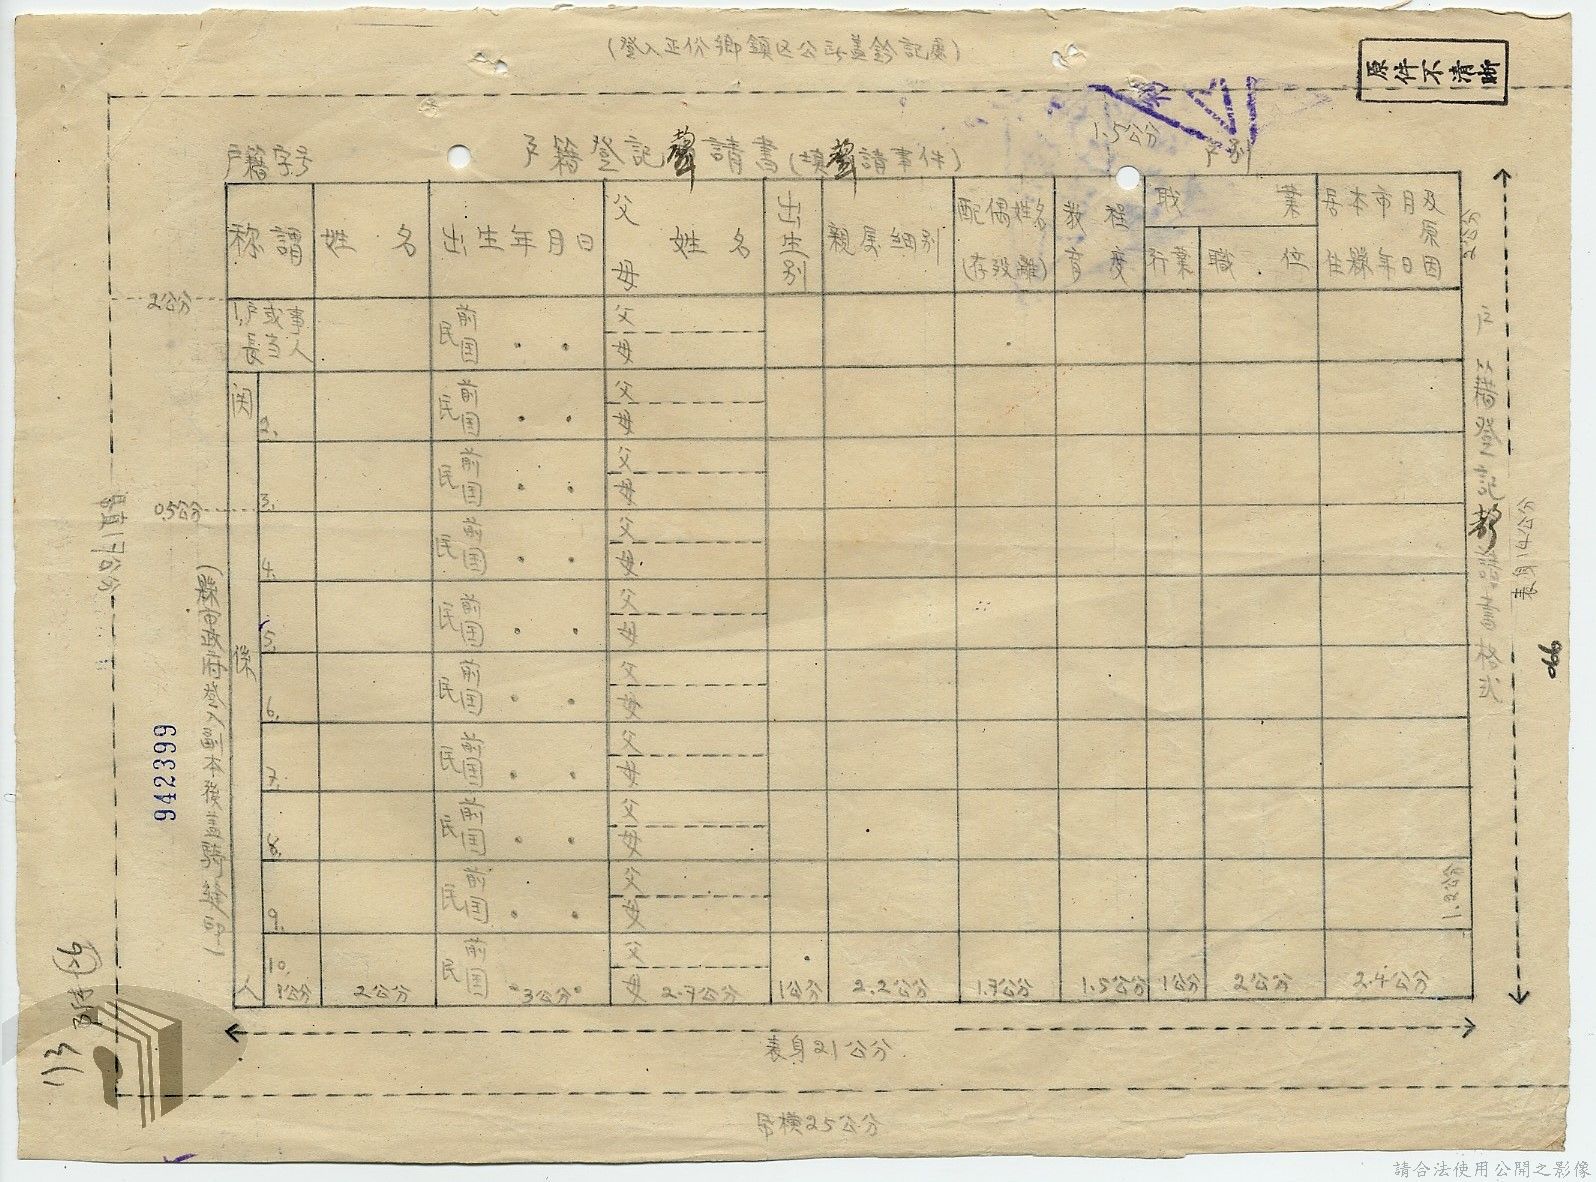 (登入正份鄉鎮区公所蓋鈐記處)
原件不清晰
1.5公分
戶籍字号
戶籍登記聲請書(填聲請事件)
戶別
称謂
姓名
出生年月日
父母
姓名
出生別
親屬細別
配偶姓名
(存歿離)
教育程度
職業
行業
職位
居住本縣市年月日及原因
2公分
2公分
1.戶長或当事人
民前国
父
母
関係人
2.
民前国
父
母
3.
民前国
父
母
0.5公分
4.
民前国
父
母
5.
民前国
父
母
6.
民前国
父
母
7.
民前国
父
母
8.
民前国
父
母
9.
民前国
父
母
1.2公分
10.
民前国
父
母
1公分
2公分
3公分
2.7公分
1公分
2.2公分
1.7公分
1.5公分
1公分
2公分
2.4公分
表身21公分
横25公分
戶籍登記聲請書格式
表身14公分
066
直17公分
(縣市政府登入副本後蓋騎縫印)
942399
附
請合法使用公開之影像